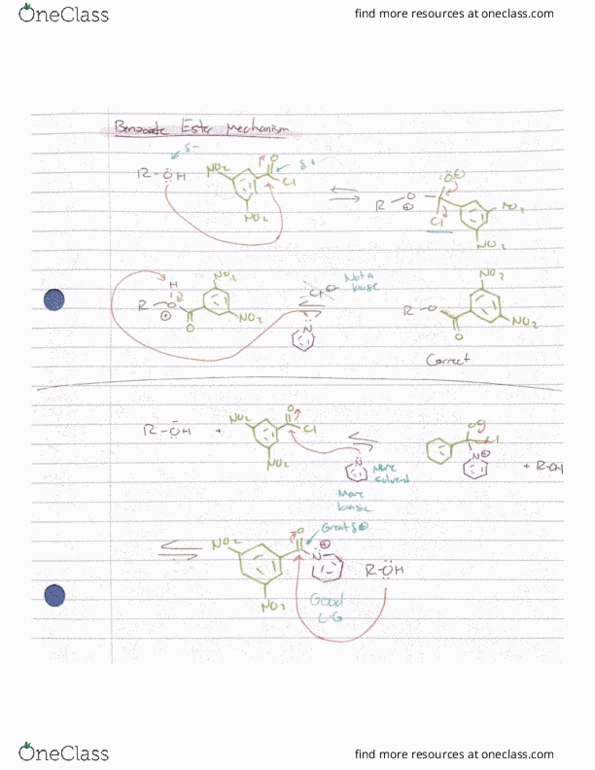 OneClass
find more resources at oneclass.com
Benzoate Ester Mechanism
δ-
R-ÖH
NO2
O
Cl
δ+
NO2
R
O
⊕
O⊖
Cl
NO2
NO2
H
R-O
⊕
O
NO2
NO2
Cl⊖
Not a
base
N
R-O
O
NO2
NO2
Correct
R-ÖH
+
NO2
O
Cl
NO2
N
More
solvent
More
basic
O⊖
Cl
N⊕
+ R-OH
NO2
NO2
O
Great δ⊕
N
⊕
R-ÖH
Good
L-G
OneClass
find more resources at oneclass.com